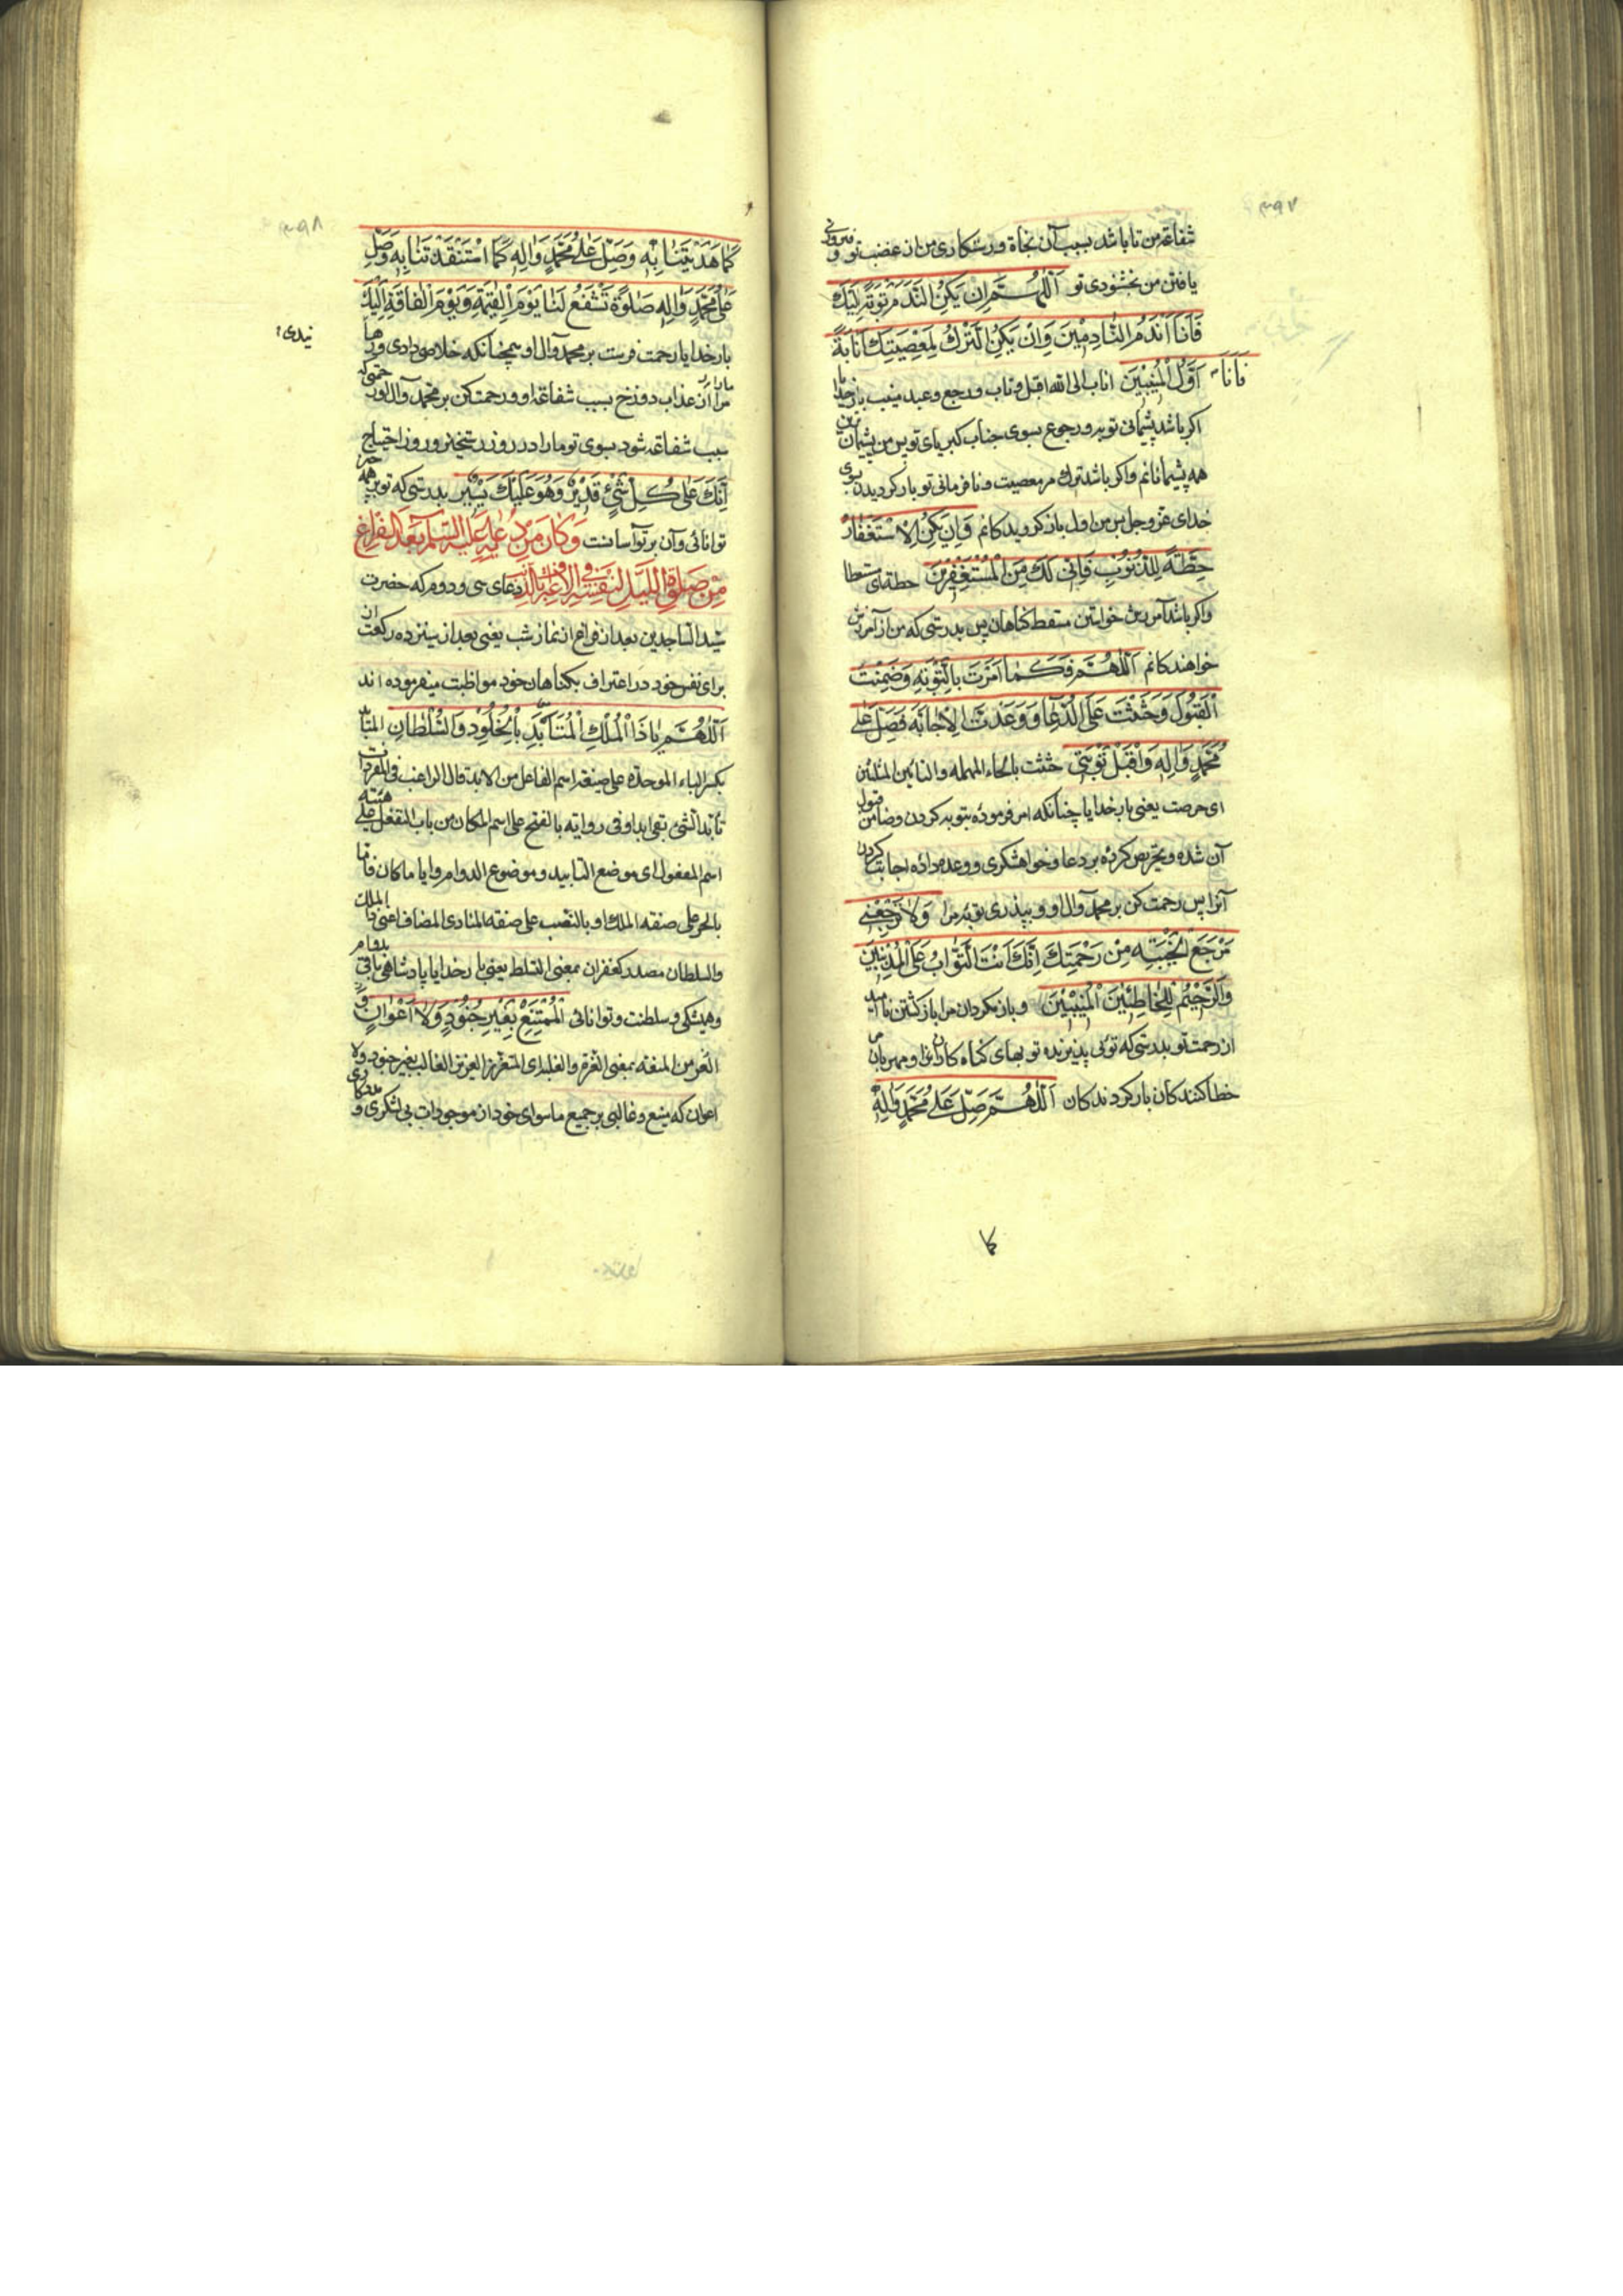 ۳۹۷
شفاعة من تا باشد بسبب آن نجاة ورستکاری من از غضب تو و فیروزی
یافتن من بخشنودی تو اَللّهُمَّ اِن یَکُنِ النَّدَمُ تَوبَةً اِلَیكَ
فَاَنَا اَندَمُ النّادِمینَ وَاِنْ یَکُنِ التَّرْكُ لِمَعْصِیَتِكَ اِنَابَةً
فَاَنَا اَوَّلُ الْمُنیبینَ اناب الی الله اقبل وتاب ورجع وعبد منیب بار خدایا
اکر باشد پشیمانی توبه ورجوع بسوی جناب کبریای تو پس من پشیمان ترین
همه پشیمانانم واکر باشد ترك مر معصیت ونافرمانی تو باز کردیدن بسوی
خدای عز وجل پس من اول باز کردیدکانم وَاِن یَکُنِ الاِسْتِغْفَارُ
حِطَّةً لِلذُّنُوبِ فَاِنّی لَكَ مِنَ الْمُسْتَغْفِرینَ حطة ای مستعطا
واکر باشد آمرزش خواستن مسقط کناهان پس بدرستی که من از آمرزش
خواهندکانم اَللّهُمَّ فَکَمَا اَمَرْتَ بِالتَّوْبَةِ وَضَمِنْتَ
الْقَبُولَ وَحَثَثْتَ عَلَی الدُّعَاءِ وَوَعَدْتَ الاِجَابَةَ فَصَلِّ عَلی
مُحَمَّدٍ وَالِهِ وَاقْبَلْ تَوْبَتی حثثت بالحاء المهمله والثائین المثلثین
ای حرصت یعنی بار خدایا چنانکه امر فرمودهٔ بتوبه کردن وضامن قبول
آن شده وتحریص کردهٔ بر دعا وخواهشکری ووعده دادهٔ اجابت کردن
آنرا پس رحمت کن بر محمد وآل او وبپذیر توبهٔ مرا وَلاَ تَرْجِعْنی
مَرْجَعَ الْخَیْبَةِ مِنْ رَحْمَتِكَ اِنَّكَ اَنْتَ التَّوّابُ عَلَی الْمُذْنِبینَ
وَالرَّحیمُ لِلْخَاطِئینَ الْمُنیبینَ وباز مکردان مرا باز کشتن ناامید
از رحمت تو بدرستی که توئی پذیرنده توبهای کناه کاران را ومهربان
خطا کنندکان باز کردندکان اَللّهُمَّ صَلِّ عَلی مُحَمَّدٍ وَالِهِ
کما
۳۹۸
کَمَا هَدَیْتَنَا بِهِ وَصَلِّ عَلی مُحَمَّدٍ وَالِهِ کَمَا اسْتَنْقَذْتَنَا بِهِ وَصَلِّ
عَلی مُحَمَّدٍ وَالِهِ صَلوةً تَشْفَعُ لَنَا یَوْمَ الْقِیمَةِ وَیَوْمَ الْفَاقَةِ اِلَیْكَ
بار خدایا رحمت فرست بر محمد وآل او همچنانکه خلاص دادی ورها
نیدی
مارا از عذاب دوزخ بسبب شفاعة او ورحمت کن بر محمد وآل او رحمتی که
سبب شفاعة شود بسوی تو مارا در روز رستخیز وروز احتیاج
اِنَّكَ عَلی کُلِّ شَیْءٍ قَدیرٌ وَهُوَ عَلَیْكَ یَسیرٌ بدرستی که تو بر همه چیز
توانائی وآن بر تو آسانست وَکَانَ مِنْ دُعَائِهِ عَلَیْهِ السَّلامُ بَعْدَ الْفَرَاغِ
مِنْ صَلوةِ اللَّیْلِ لِنَفْسِهِ فِی الاِعْتِرَافِ بِالذَّنْبِ دعای سی ودوم که حضرت
سید الساجدین بعد از فراغ از نماز شب یعنی بعد از سیزده رکعت از
برای نفس خود در اعتراف بکناهان خود مواظبت میفرموده اند
اَللّهُمَّ یَا ذَا الْمُلْكِ الْمُتَاَبِّدِ بِالْخُلُودِ وَالسُّلْطَانِ المتأبد
بکسر الباء الموحدة علی صیغة اسم الفاعل من الابد قال الراغب فی المفردات
تأبد الشئ بقی ابدا وفی روایة بالفتح علی اسم المکان من باب التفعل علی هیئة
اسم المفعول ای موضع التابید وموضوع الدوام وایا ما کان فاما
بالجر علی صفة الملك او بالنصب علی صفة المنادی المضاف اعنی ذا الملك
والسلطان مصدر کغفران بمعنی التسلط یعنی بار خدایا پادشاهی باقی بدوام
وهمیشکی وسلطنت وتوانائی الْمُمْتَنِعِ بِغَیْرِ جُنُودٍ وَلاَ اَعْوَانٍ
العز من المنعه بمعنی العزة والغلبة ای المتعزز العزیز الغالب بغیر جنود ولا
اعوان که منیع وغالبی بر جمیع ماسوای خود از موجودات بی لشکری ومددکاری